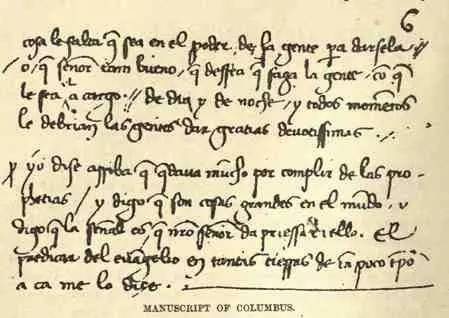 6
cosa le falta q̃ sea en el poder de la gente pa darsela //
/ o, q̃ señor tam bueno, q̃ dessea q̃ faga la gente, cõ q̃
le sea a cargo // de dia y de noche / y todos momẽtos
le debrian las gentes dar gratias devotissimas ./.
yo dise arriba q̃ q̃dava mucho por complir de las pro-
phetias / y digo q̃ son cosas grandes en el mũdo . y
digo q̃ la señal es q̃ nr̃o señor da priessa ello . El
predicar del evãgelio en tantas tierras de tã poco tp̃o
a ca me lo dise.
MANUSCRIPT OF COLUMBUS.